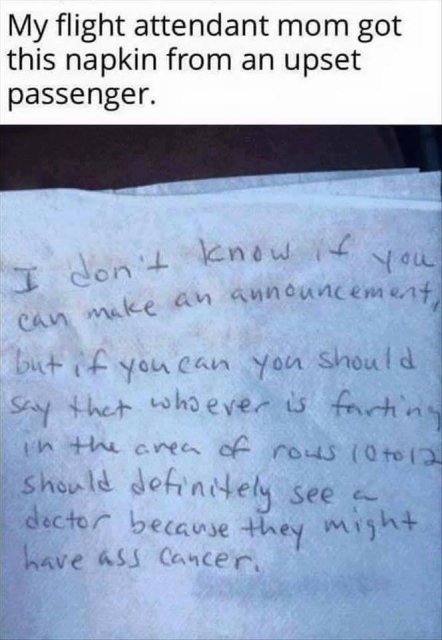 My flight attendant mom got
this napkin from an upset
passenger.
I don't know if you
can make an announcement,
but if you can you should
say that whoever is farting
in the area of rows 10 to 12
should definitely see a
doctor because they might
have ass cancer.